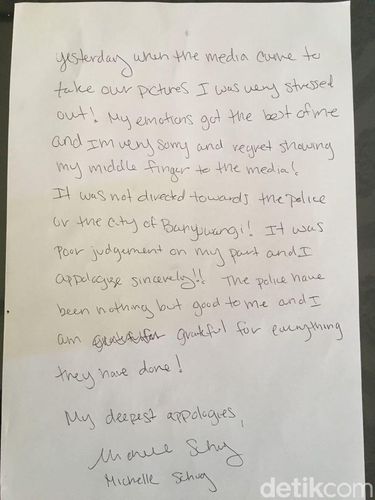 yesterday when the media came to
take our pctures I was very stressed
out! My emotions got the best of me
and I'm very sorry and regret showing
my middle finger to the media!
It was not directd towards the police
or the city of Banyuwangi! It was
poor judgement on my part and I
appologise sincerely!! The police have
been nothing but good to me and I
am grateful for everything
they have done!
My deepest appologies,
Michelle
Michelle
detikcom